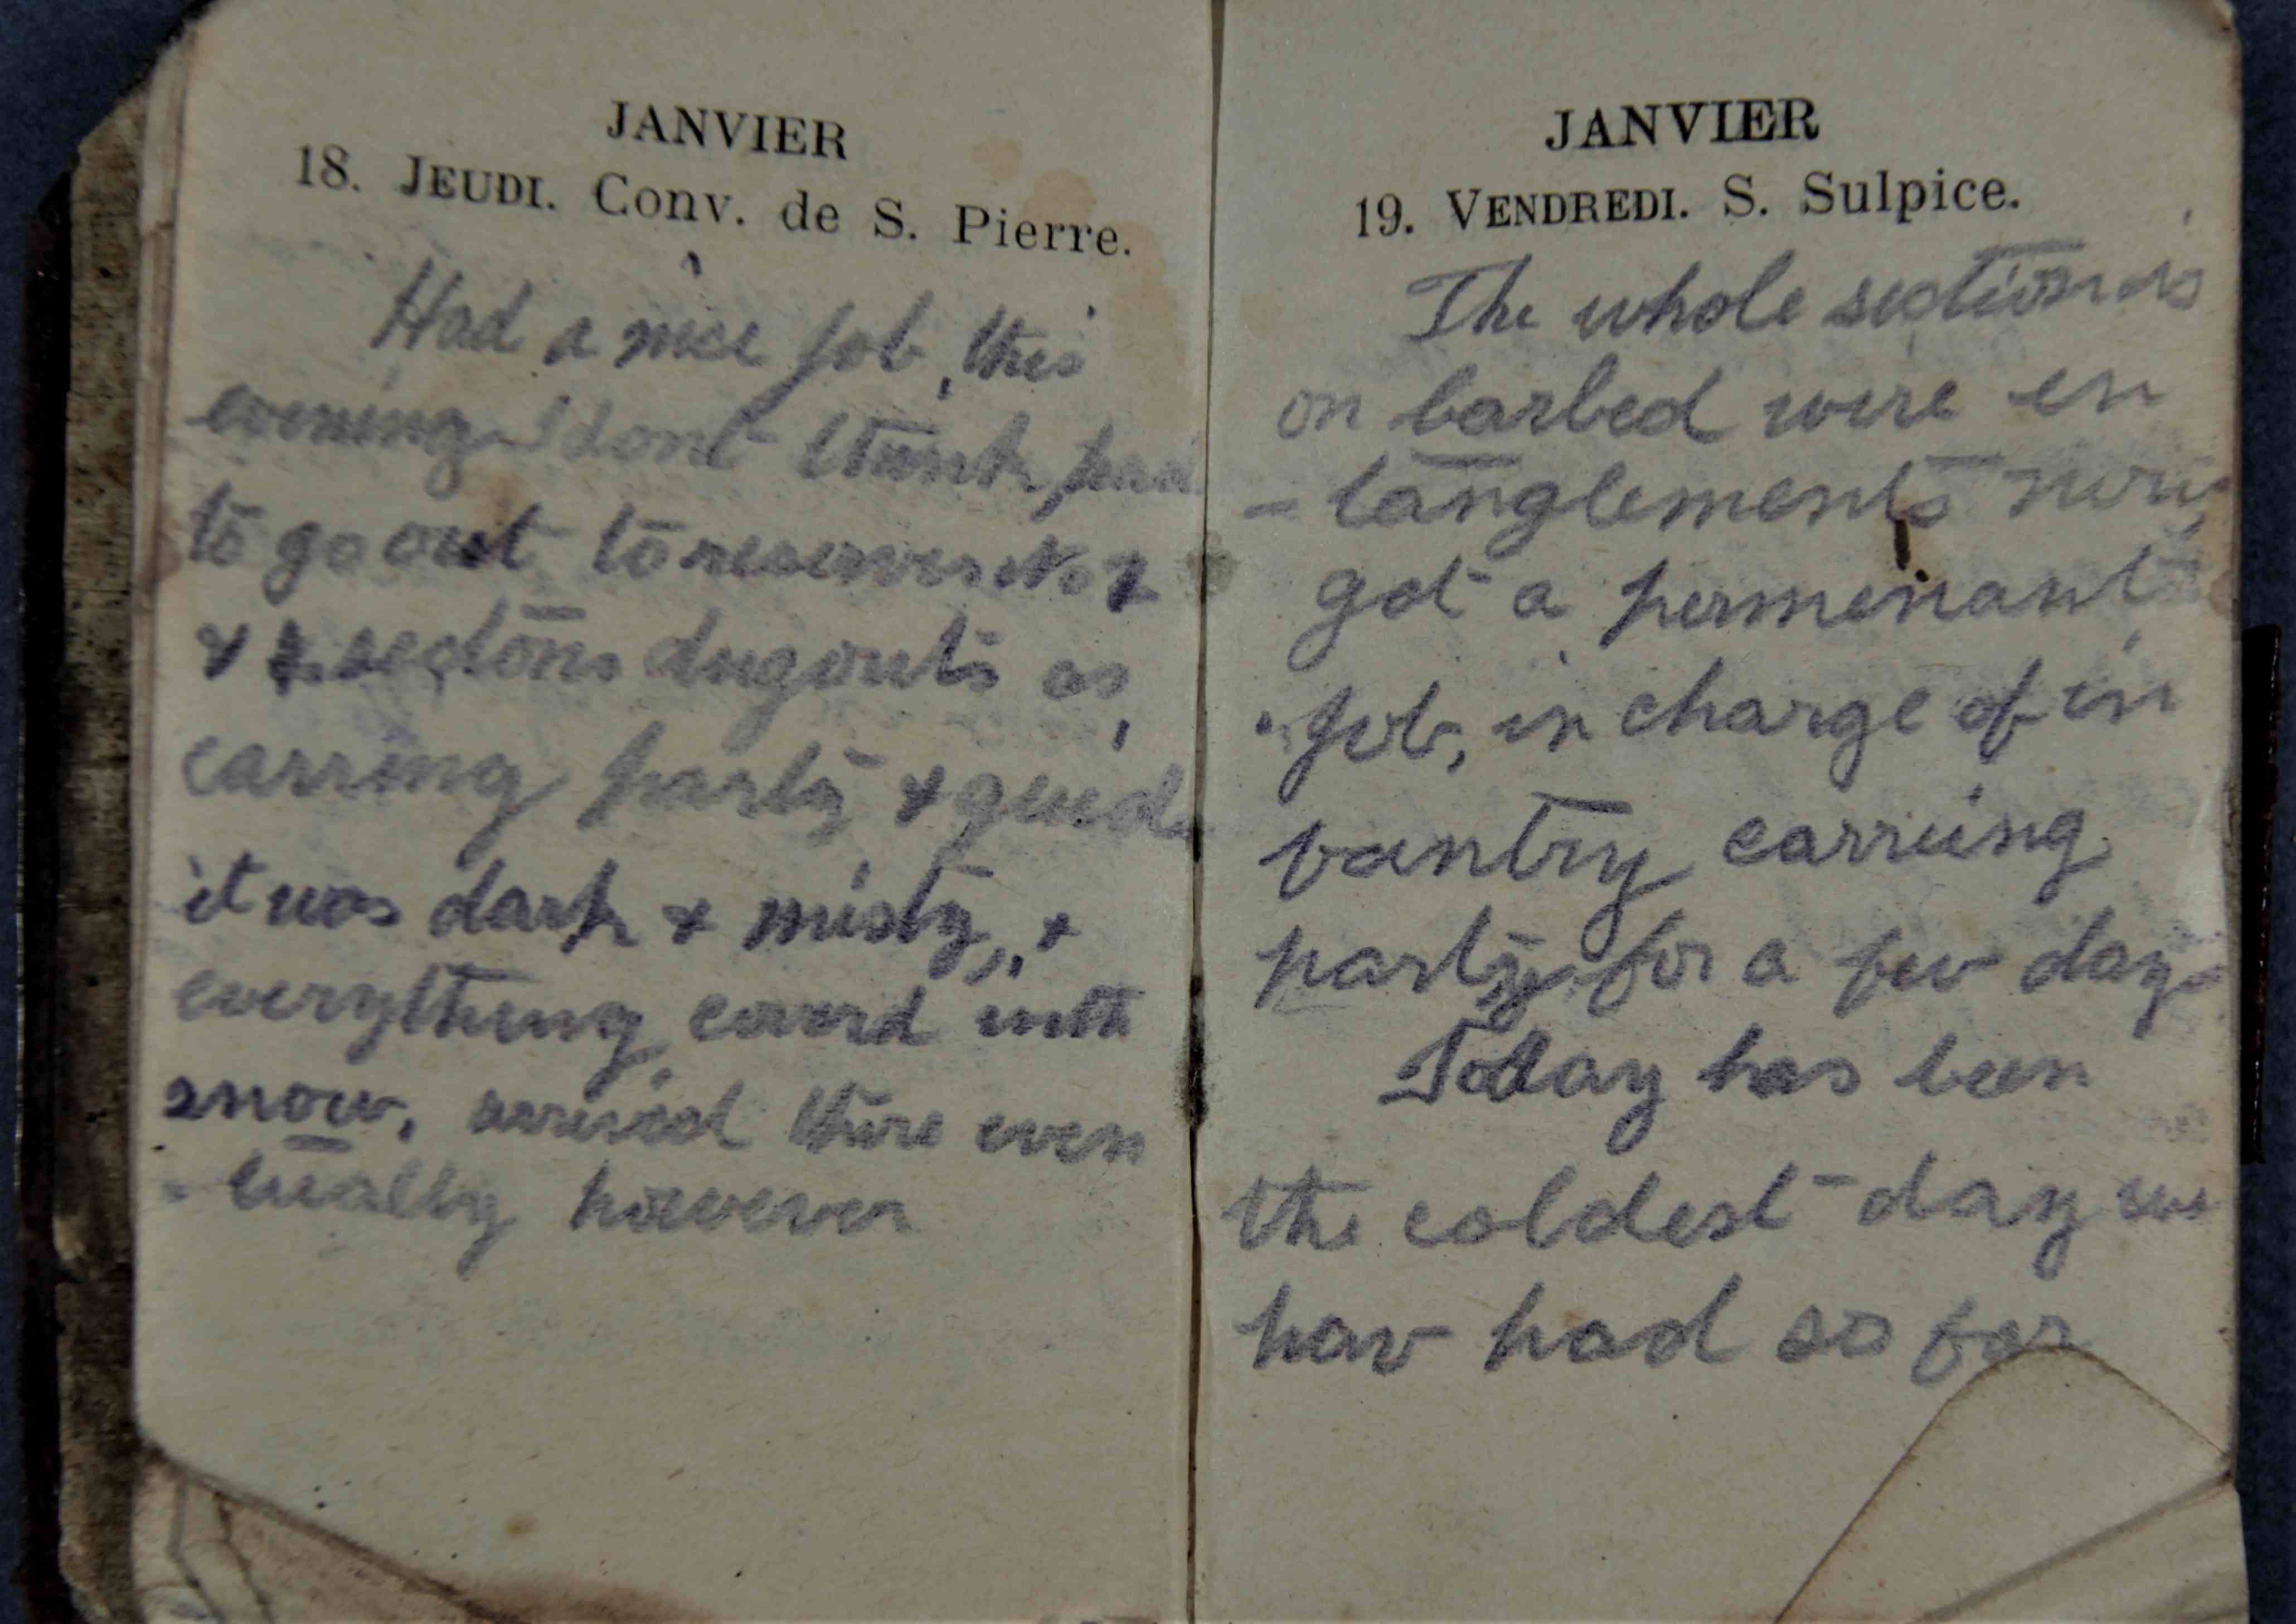 JANVIER
18. JEUDI. Conv. de S. Pierre.
Had a nice job, this
evening I dont think, had
to go out to reserves No 2
& sectons dugouts as
carring party & guide
it was dark & misty, &
everything coverd with
snow, arrived there even
- tually however
JANVIER
19. VENDREDI. S. Sulpice.
The whole section is
on barbed wire en
- tanglements now
got a permenant
job, in charge of in
fantry carriing
party for a few days
Today has been
the coldest day we
hav had so far